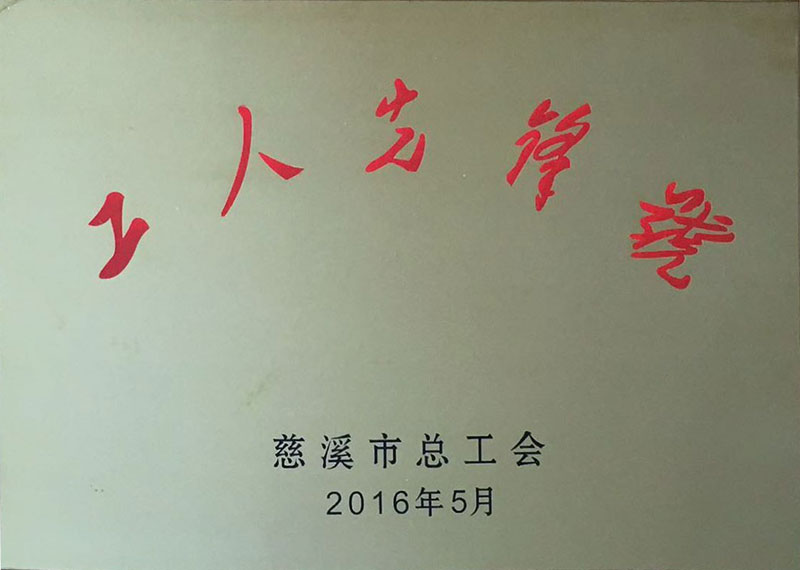 工人先锋号
慈溪市总工会
2016年5月